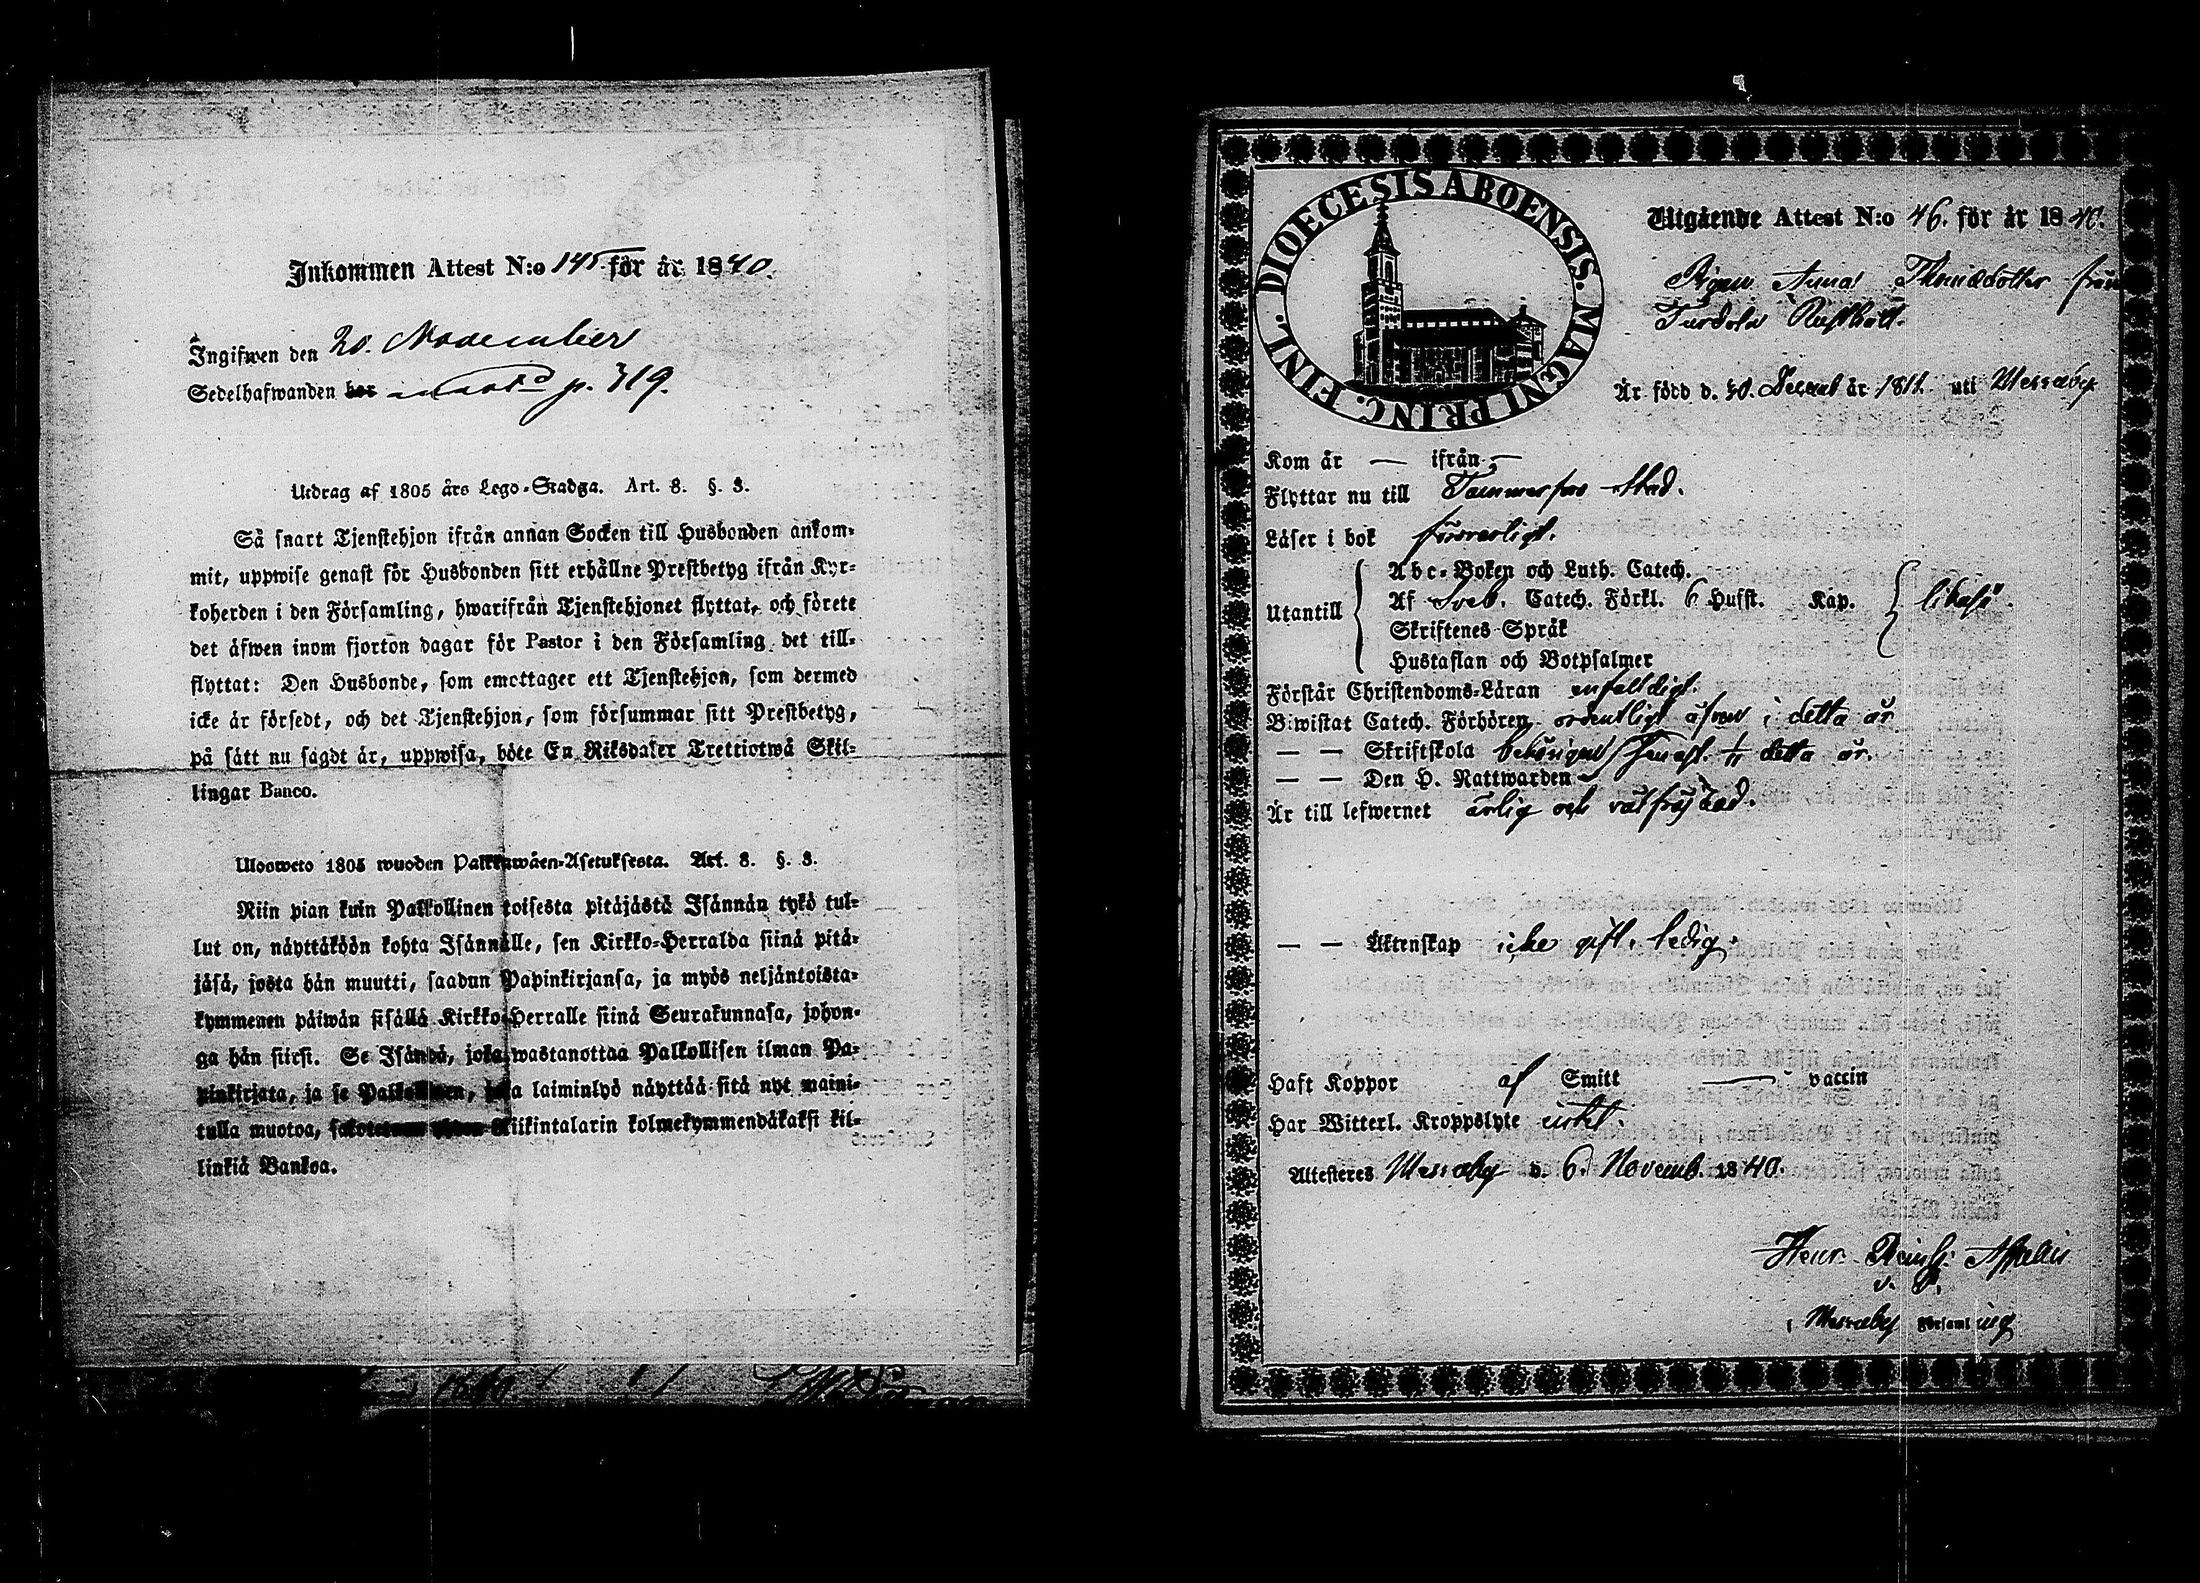 Inkommen Attest N:o 145 för år 1840.
Ingifwen den 20. November
Sedelhafwanden bor p. 319.
Utdrag af 1805 års Lego-Stadga. Art. 8. §. 3.
Så snart Tjenstehjon ifrån annan Socken till Husbonden ankom-
mit, uppwise genast för Husbonden sitt erhållne Prestbetyg ifrån Kyr-
koherden i den Församling, hwarifrån Tjenstehjonet flyttat, och förete
det äfwen inom fjorton dagar för Pastor i den Församling det till-
flyttat: Den Husbonde, som emottager ett Tjenstehjon, som dermed
icke är försedt, och det Tjenstehjon, som försummar sitt Prestbetyg,
på sätt nu sagdt är, uppwisa, böte En Riksdaler Trettiotwå Skil-
lingar Banco.
Ulosweto 1805 wuoden Palkkawäen-Asetuksesta. Art. 8. §. 3.
Niin pian kuin Palkollinen toisesta pitäjästä Isännän tykö tul-
lut on, näyttäköön kohta Isännälle, sen Kirkko-Herralda siinä pitä-
jäsä, josta hän muutti, saadun Papinkirjansa, ja myös neljäntoista-
kymmenen päiwän sisällä Kirkko-Herralle siinä Seurakunnasa, johon-
ga hän siirsi. Se Isändä, joka wastanottaa Palkollisen ilman Pa-
pinkirjata, ja se Palkollinen, joka laiminlyö näyttää sitä nyt maini-
tulla muotoa, Riikintalarin kolmekymmendäkaksi kil-
linkiä Bankoa.
DIOECESIS ABOENSIS. MAGNI PRINC. FINL.
Utgående Attest N:o 46. för år 1840.
Pigan Anna Thomasdotter från
Rusthåll.
Är född d. 30. Decemb år 1811. uti Messuby
Kom år — ifrån —
Flyttar nu till Tammerfors Stad.
Läser i bok försvarligt.
Abc-Boken och Luth. Catech.
Utantill Af Sveb. Catech. Förkl. 6 Hufst. Kap. likaså.
Skriftenes Språk
Hustaflan och Botpsalmer
Förstår Christendoms-Läran enfaldigt.
Biwistat Catech. Förhören ordentligt äfven i detta år
— — Skriftskola behörigen senast detta år.
— — Den H. Nattwarden
Är till lefwernet ärlig och välfräjdad.
— — Äktenskap icke gift, ledig.
Haft Koppor af Smitt — vaccin
Har Witterl. Kroppslyte intet.
Attesteres Messuby d. 6. Novemb. 1840.
Henr. Reinh. Aspelin
v. P.
i Messuby Församling